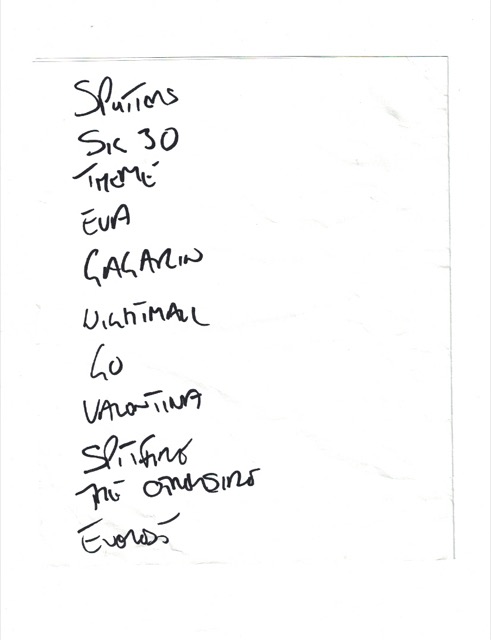 SPUTNIK
SIG 30
THEME
EVA
GAGARIN
NIGHTMAIL
GO
VALENTINA
SPITFIRE
THE OTHERSIDE
EVEREST